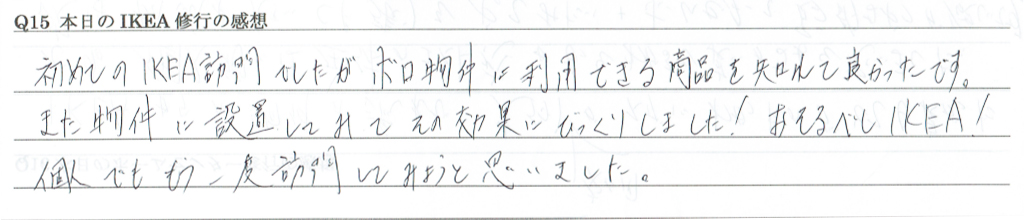 Q15 本日のIKEA修行の感想
初めてのIKEA訪問でしたがボロ物件に利用できる商品を知れて良かったです。
また物件に設置してみてその効果にびっくりしました！おそるべしIKEA！
個人でももう一度訪問してみようと思いました。